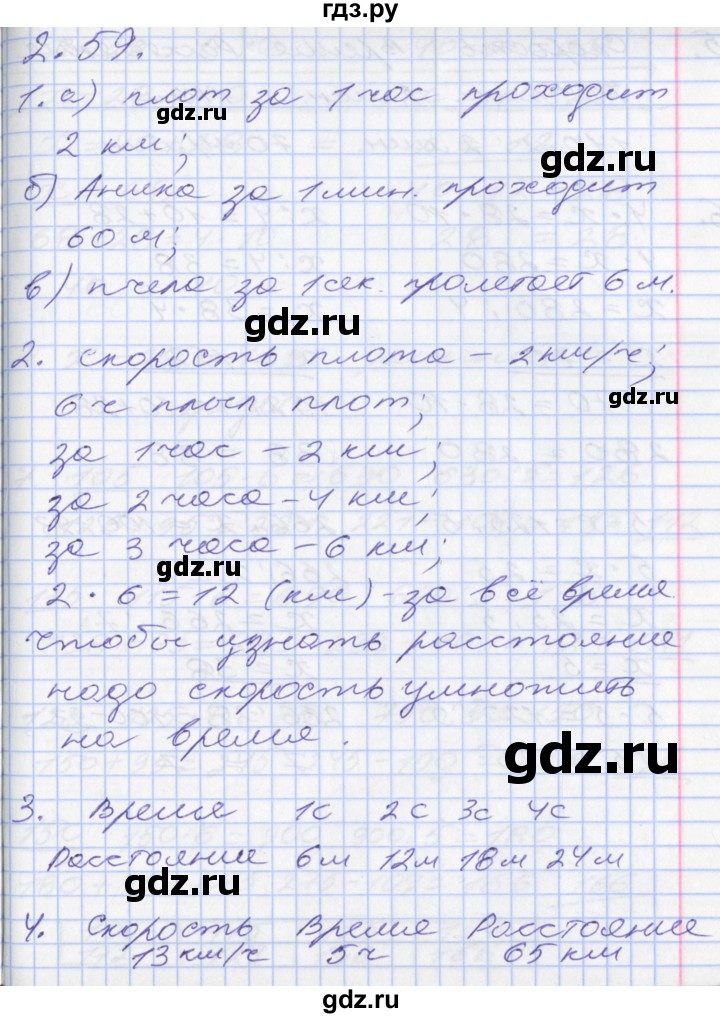 гдз.ру
2.59.
1. а) плот за 1 час проходит
gdz.ru
2 км;
gdz.ru
б) Аника за 1 мин. проходит
60 м;
в) пчела за 1 сек. пролетает 6 м.
gdz.ru
2. скорость плота – 2 км/ч;
6 ч плыл плот;
gdz.ru
за 1 час – 2 км;
gdz.ru
за 2 часа – 4 км;
за 3 часа – 6 км;
gdz.ru
2 · 6 = 12 (км) - за всё время
чтобы узнать расстояние
надо скорость умножить
на время.
gdz.ru
3. Время 1с 2с 3с 4с
Расстояние 6м 12м 18м 24м
gdz.ru
4. Скорость Время Расстояние
13 км/ч 5ч 65 км
gdz.ru